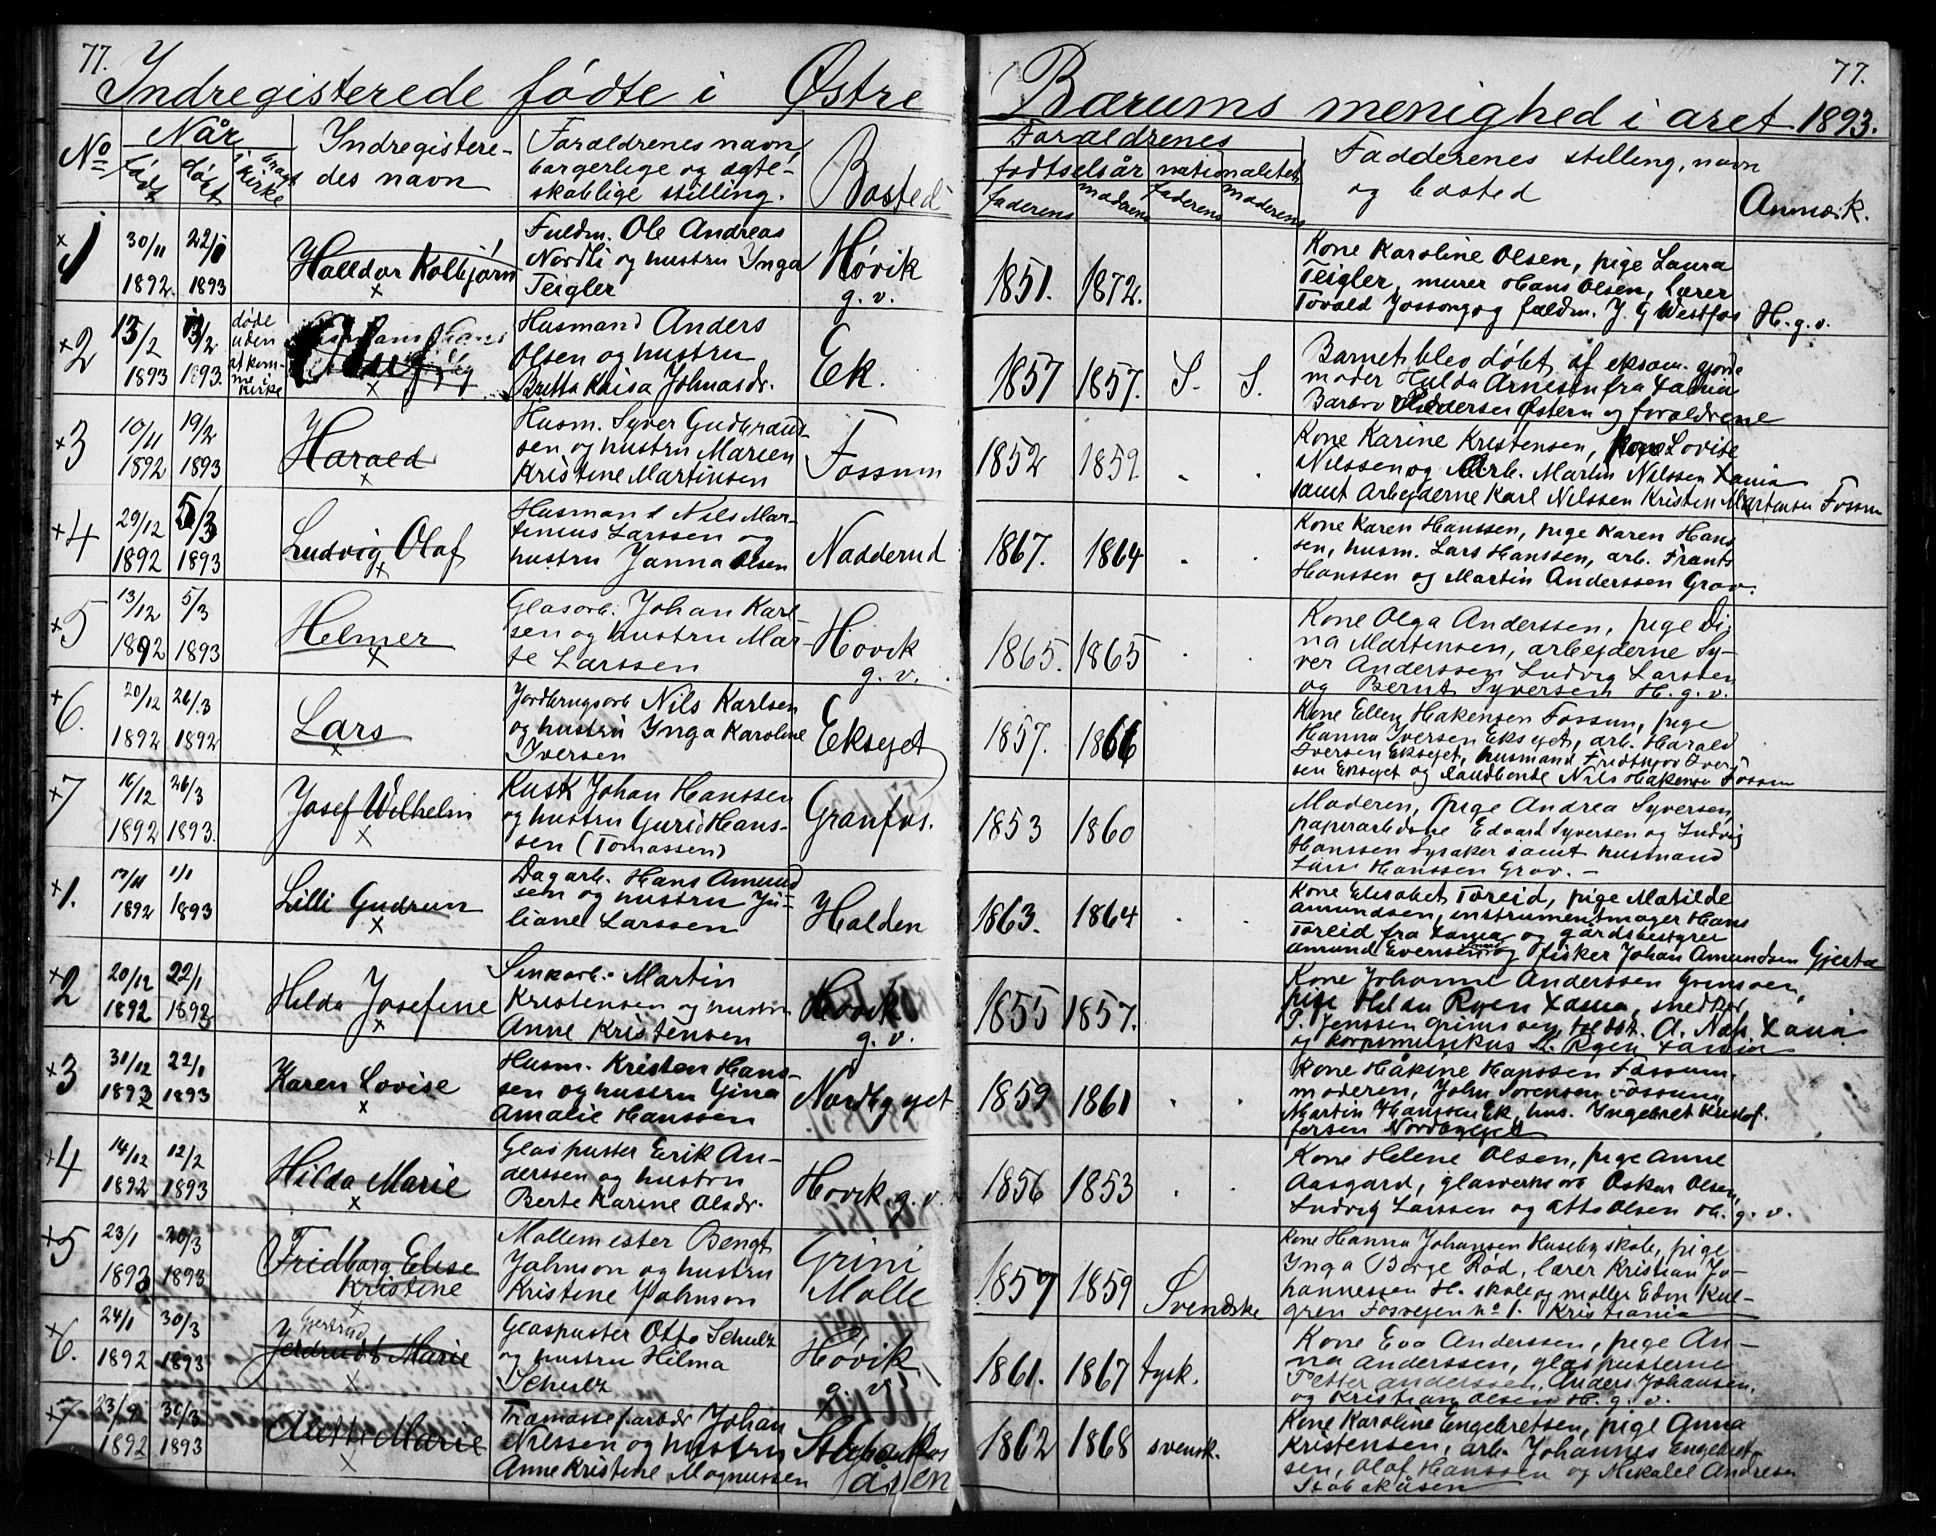 77.
77.
Indregisterede fødte i Østre Bærums menighed i året 1893.
No
Når
født
døbt
i kirke
Indregistere-
des navn
Forældrenes navn,
borgerlige og ægte-
skablige stilling.
Bosted
Forældrenes
fødtselsår
nationalitet
faderens
moderens
faderens
moderens
Fadderenes stilling, navn
og bosted
Anmærk.
1
30/11
1892.
1893
Halldor Kolbjørn
Fuldm. Ole Andreas
Nordli og hustru Ynga
Teigler
Høvik
g. v.
1851.
1872.
Kone Karoline Olsen, pige Laura
Teigler, murer Hans Olsen, lærer
Tovald Jossong og fuldm. J. G Westfos
H. g. v.
2
13/2
1893
13/2
1893.
døde
uden
at kom-
me i
kirke
Husmand Anders
Olsen og hustru
Britta Kaisa Johnasdr.
Ek.
1857
1857.
S.
S.
Barnet blev døbt af eksam. gjorde
moder Hulda Arnesen fra Xania
Barbro Pedersen Østern og forældrene
3
10/11
1892
19/2
1893
Harald
Husm. Syver Gudbrand-
sen og hustru Maren
Kristine Martinsen
Fossum
1852
1859.
Kone Karine Kristensen, kone Lovise
Nilssen og Arb. Martin Nilssen Xania
samt Arbejderne Karl Nilssen Kristen Martensen Fossum
4
29/12
1892
5/3
1893
Ludvig Olaf
Husmand Nils Mar-
tinius Larssen og
hustru Janna Olsen
Nadderud
1867.
1864
Kone Karen Hanssen, pige Karen Hans-
sen, husm. Lars Hanssen, arb. Frants
Hanssen og Martin Anderssen Grav.
5
13/12
1892
5/3
1893
Helmer
Glasarb. Johan Karl-
sen og hustru Mar-
te Larssen
Høvik
g. v.
1865.
1865
Kone Olga Anderssen, pige Di-
na Martensen, arbejderne Sy-
ver Anderssen Ludvig Larssen
og Bernt Syversen H. g. v.
6.
20/12
1892
26/3
1892
Lars
Jordbrugsarb Nils Karlsen
og hustru Ynga Karoline
Iversen
Ekseyet
1857.
1866
Kone Ellen Hakensen Fossum, pige
Hanna Iversen Ekseyet, arb. Harald
Iversen Ekseyet, husmand Fridthjov Iver-
sen Ekseyet og Landhende Nils Hakensen Fossum
7
16/12
1892
26/3
1893.
Josef Wilhelm
Kusk Johan Hanssen
og hustru Guri Hans-
sen (Tomassen)
Granfos.
1853
1860
Moderen, pige Andrea Syversen,
papirarbejderne Edvard Syversen og Ludvig
Hanssen Lysaker samt husmand
Lars Hanssen Grav. -
1.
1892
1/1
1893
Lilli Gudrun
Dagarb. Hans Amund-
sen og hustru Ju-
liane Larssen
Halden
1863.
1864
Kone Elisabet Toreid, pige Matilde
Amundsen, instrumentmager Hans
Toreid fra Xania og gårdsbestyrer
Amund Evensen og fisker Johan Amundsen Gjerta
2
20/12
1892
22/1
1893
Hilda Josefine
Martin
Kristensen og hustru
Anne Kristensen
Høvik
g. v.
1855
1857.
Kone Johanne Anderssen Grimsøen,
pige Hilda Ryen Xania, snedker
P. Jenssen Grimsøen, A. Xania
og korpsmusikus Ryen Xania
3
31/12
1892
22/1
1893
Karen Lovise
Husm. Kristen Hans-
sen og hustru Gina
Amalie Hanssen
Nordbyeyet
1859
1861
Kone Håkine Hanssen Fossum,
moderen, John Sørensen Fossum,
Martin Hanssen Ek, hus. Ingebret Kristof-
fersen Nordbyeyet
4
14/12
1892
12/2
1893
Hilda Marie
Glaspuster Erik An-
derssen og hustru
Berte Karine Olsdr.
Høvik g. v.
1856
1853
Kone Helene Olsen, pige Anne
Aasgard, glasverksarb Oskar Olsen,
Ludvig Larssen og Otto Olsen H. g. v.
5
23/1
1893
30/3
1893
Fridborg Elise
Kristine
Møllemester Bengt
Johnson og hustru
Kristine Johnson
Grini
Mølle
1857
1859
Svenske
Kone Hanna Johansen Huseby skole, pige
Ynga Borge Rød, lærer Kristian Jo-
hannessen H. skole og møller Edm Kul-
gren Fosvejen no 1. Kristiania
6.
24/1
1892
30/3
1893
Gjertrud
Jerdrudt Marie
Glaspuster Otto Schulz
og hustru Hilma
Schulz
Høvik
g. v.
1861.
1867
tysk.
Kone Eva Anderssen, pige An-
na Anderssen, glaspusterne
Petter Anderssen, Anders Johansen,
og Kristian Olsen H. g. v.
7
23/9
1892
30/3
1893
Alette Marie
Træmassefarbdr Johan
Nilssen og hustru
Anne Kristine Magnussen
åsen
1862
1868
svensk.
Kone Karoline Engebretsen, pige Anna
Kristensen, arb. Johannes Engebret-
sen, Olaf Hanssen og Mikalel Andresen
Stabækåsen